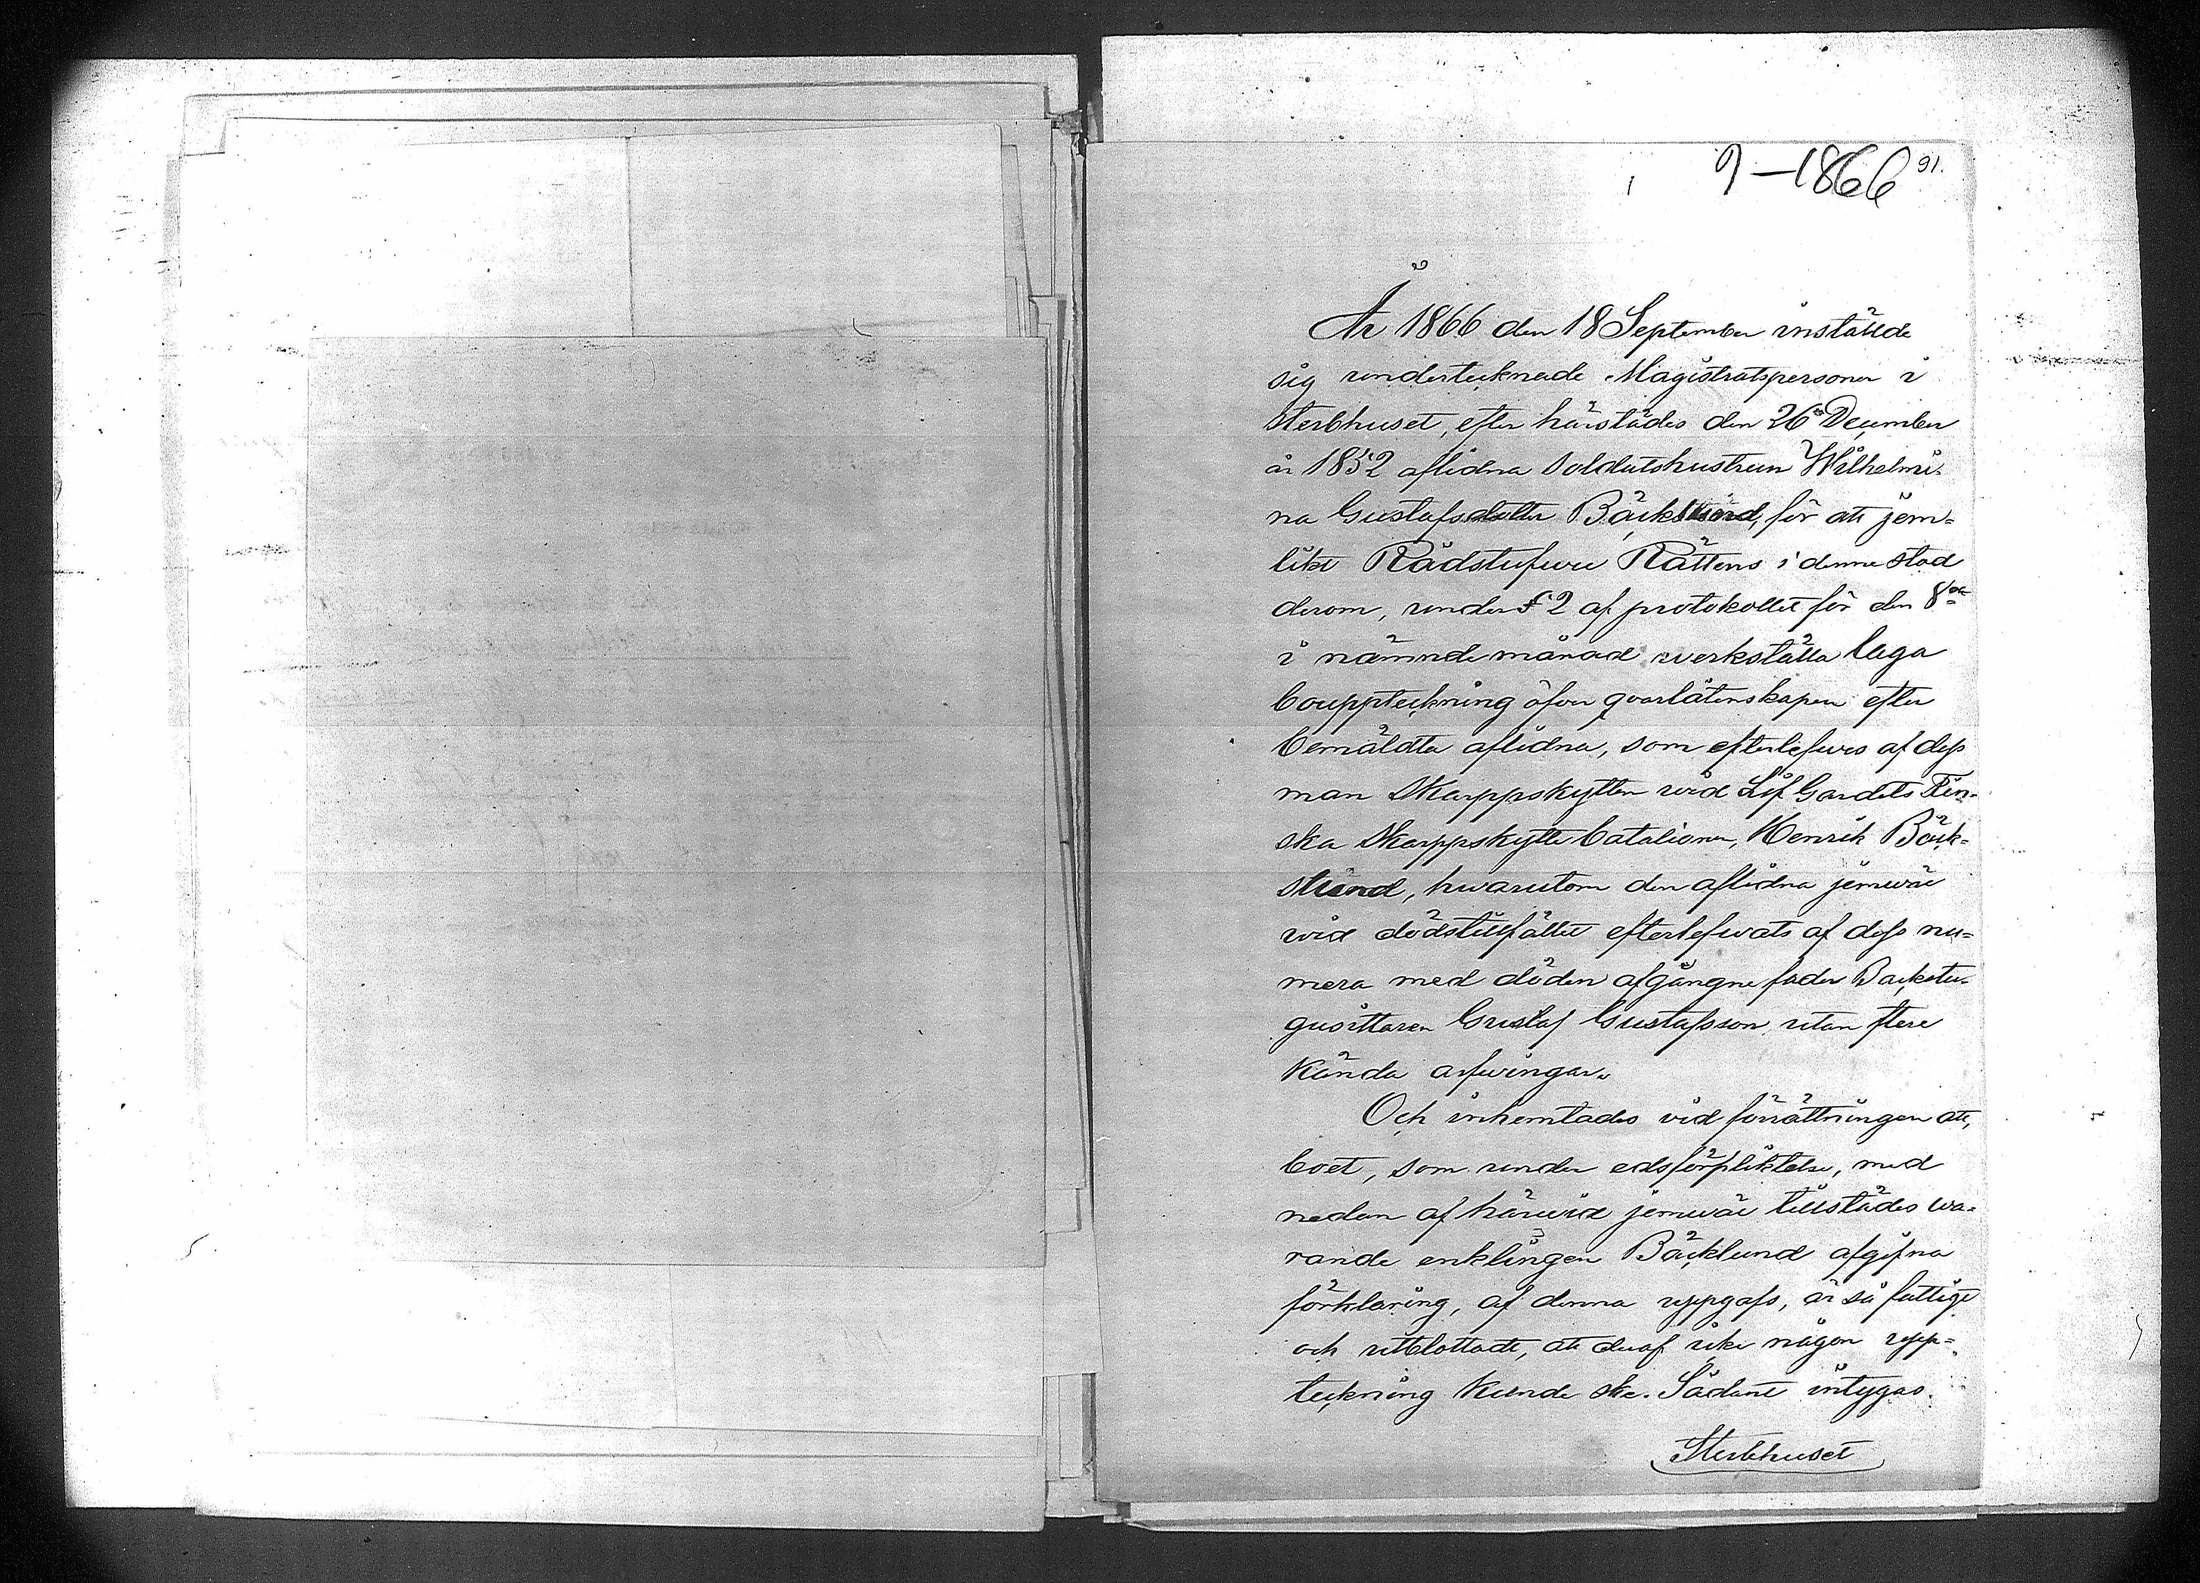 9-1866 91.
År 1866 den 18 September inställde
sig undertecknade Magistratspersoner i
sterbhuset, efter härstädes den 26 December
år 1852 aflidna Soldatshustrun Wilhelmi-
na Gustafsdotter Bäcklund, för att jem-
likt Rådstufwu Rättens i denne stad
derom, under § 2 af protokollet för den 8de
i nämnde månad werkställa laga
bouppteckning öfver qvarlåtenskapen efter
bemäldta aflidna, som efterlefwes af dess
man Skarppskytten wid Lif Gardets Fin-
ska Skarppskytte bataljon, Henrik Bäck-
lund, hwarutom den aflidna jemwäl
wid dödstillfället efterlefwats af dess nu-
mera med döden afgångne fader Backstu-
gusittaren Gustaf Gustafsson, utan flere
kända arfwingar.
Och inhemtades vid förrättningen att,
boet, som under edsförpliktelse, med
nedan af härwid jemwäl tillstädes wa-
rande enklingen Bäcklund afgifna
förklaring, af denna uppgafs, är så fattigt
och utblottadt, att deraf icke någon upp-
teckning kunde ske. Sådant intygas.
Sterbhuset